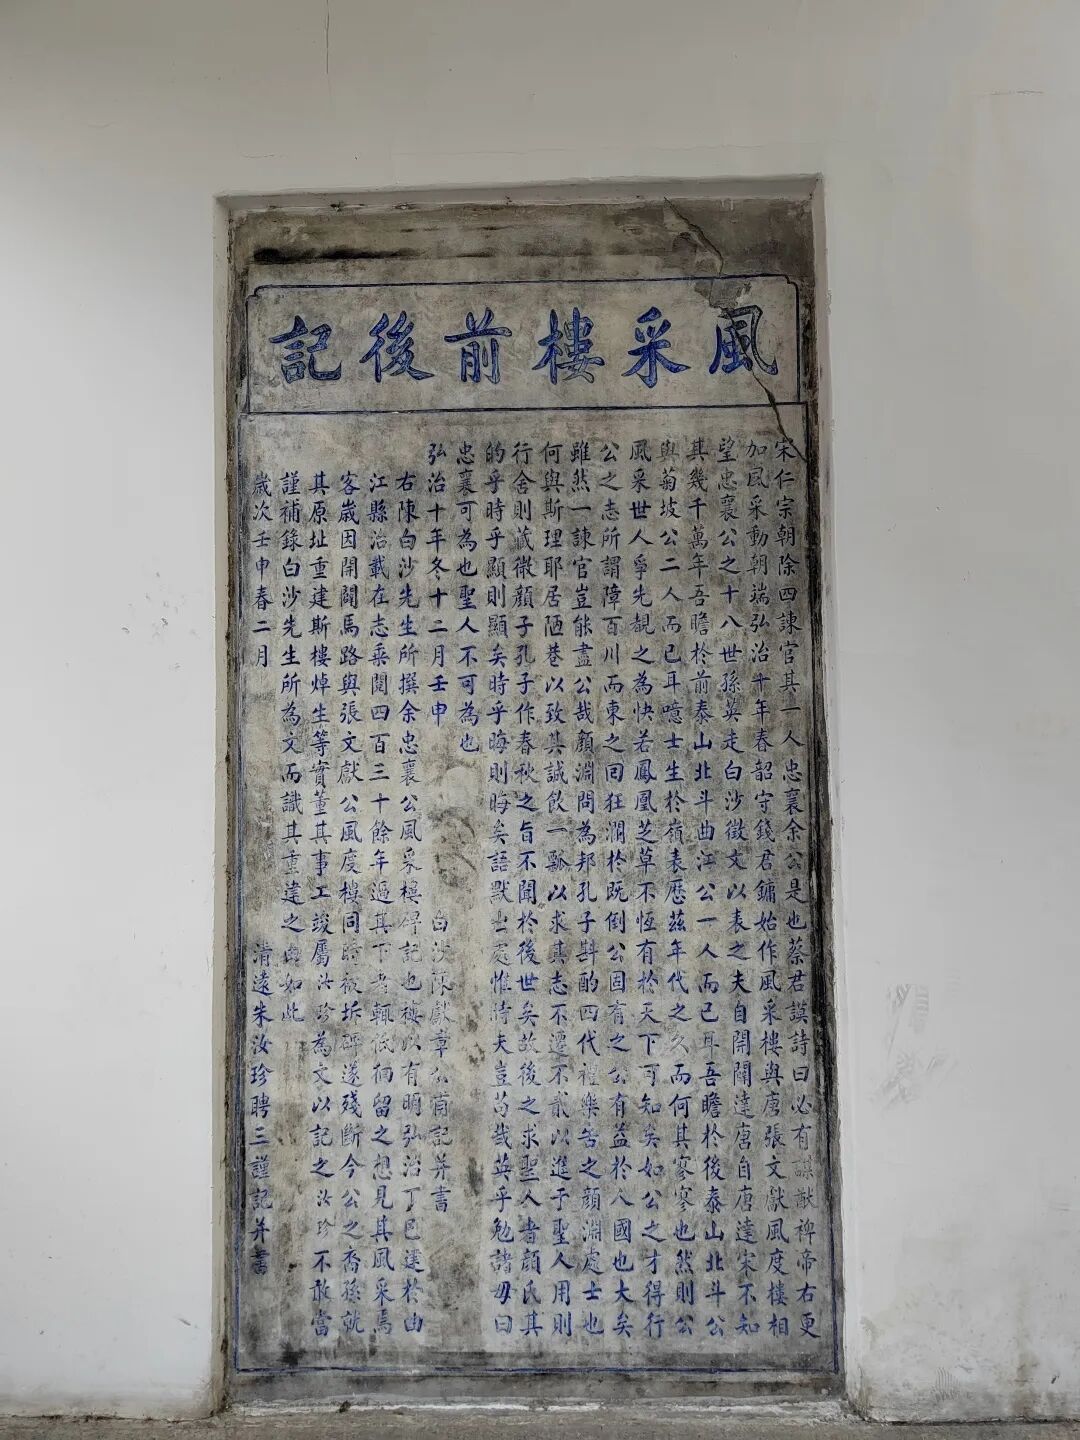 風采樓前後記
宋仁宗朝除四諫官其一人忠襄余公是也蔡君謨詩曰必有謀猷裨帝右更
加風采動朝端弘治十年春韶守錢君鏞始作風采樓與唐張文獻風度樓相
望忠襄公之十八世孫英走白沙徵文以表之夫自開闢達唐自唐達宋不知
其幾千萬年吾瞻於前泰山北斗曲江公一人而已耳吾瞻於後泰山北斗公
與菊坡公二人而已耳噫士生於嶺表歷茲年代之久而何其寥寥也然則公
風采世人爭先覩之為快若鳳凰芝草不恆有於天下可知矣如公之才得行
公之志所謂障百川而東之回狂瀾於既倒公固有之公有益於人國也大矣
雖然一諫官豈能盡公哉顏淵問為邦孔子斟酌四代禮樂告之顏淵處士也
何與斯理耶居陋巷以致其誠飲一瓢以求其志不遷不貳以進于聖人用則
行舍則藏微顏子孔子作春秋之旨不聞於後世矣故後之求聖人者顏氏其
的乎時乎顯則顯矣時乎晦則晦矣語默出處惟時夫豈苟哉英乎勉諸毋曰
忠襄可為也聖人不可為也
弘治十年冬十二月壬申 白沙陳獻章公甫記并書
右陳白沙先生所撰余忠襄公風采樓碑記也樓以有明弘治丁巳建於曲
江縣治載在志乘閱四百三十餘年過其下者輒低徊留之想見其風采焉
客歲因開闢馬路與張文獻公風度樓同時被拆碑遂殘斷今公之裔孫就
其原址重建斯樓焯生等實董其事工竣屬汝珍為文以記之汝珍不敢當
謹補錄白沙先生所為文而識其重建之由如此
歲次壬申春二月 清遠朱汝珍聘三謹記并書